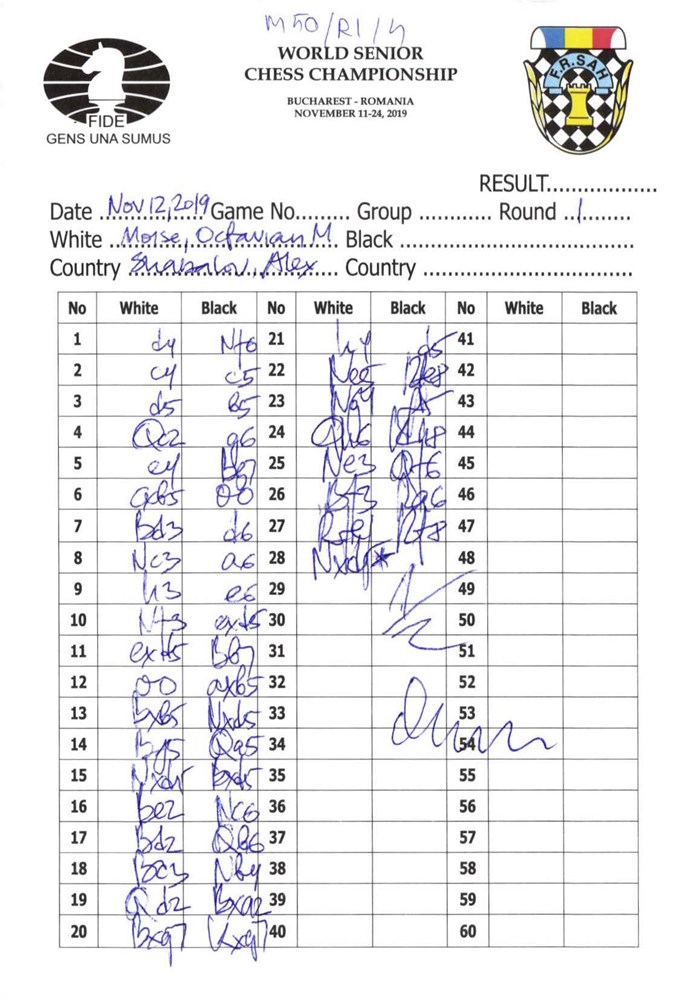 M50/R1/4
WORLD SENIOR
CHESS CHAMPIONSHIP
BUCHAREST - ROMANIA
NOVEMBER 11-24, 2019
FIDE
GENS UNA SUMUS
F.R.SAH
RESULT..................
Date Nov 12, 2019 Game No......... Group ............ Round 1
White Moise, Octavian M. Black
Country Shabalov, Alex Country
No White Black No White Black No White Black
1 d4 Nf6 21 h4 d5 41
2 c4 c5 22 Nee5 42
3 d5 b5 23 Ng4 43
4 Qc2 g6 24 Qh6 44
5 e4 Bg7 25 Ne3 Qf6 45
6 cxb5 00 26 Bf3 Ra6 46
7 Bd3 d6 27 47
8 Nc3 a6 28 48
9 h3 e6 29 49
10 Nf3 exd5 30 50
11 exd5 Bb7 31 51
12 00 axb5 32 52
13 Bxb5 Nxd5 33 53
14 Bg5 Qa5 34 54
15 Nxd5 Bxd5 35 55
16 Be2 Nc6 36 56
17 Bd2 Qb6 37 57
18 Bc3 Nb4 38 58
19 Qd2 Bxa2 39 59
20 Bxg7 Kxg7 40 60